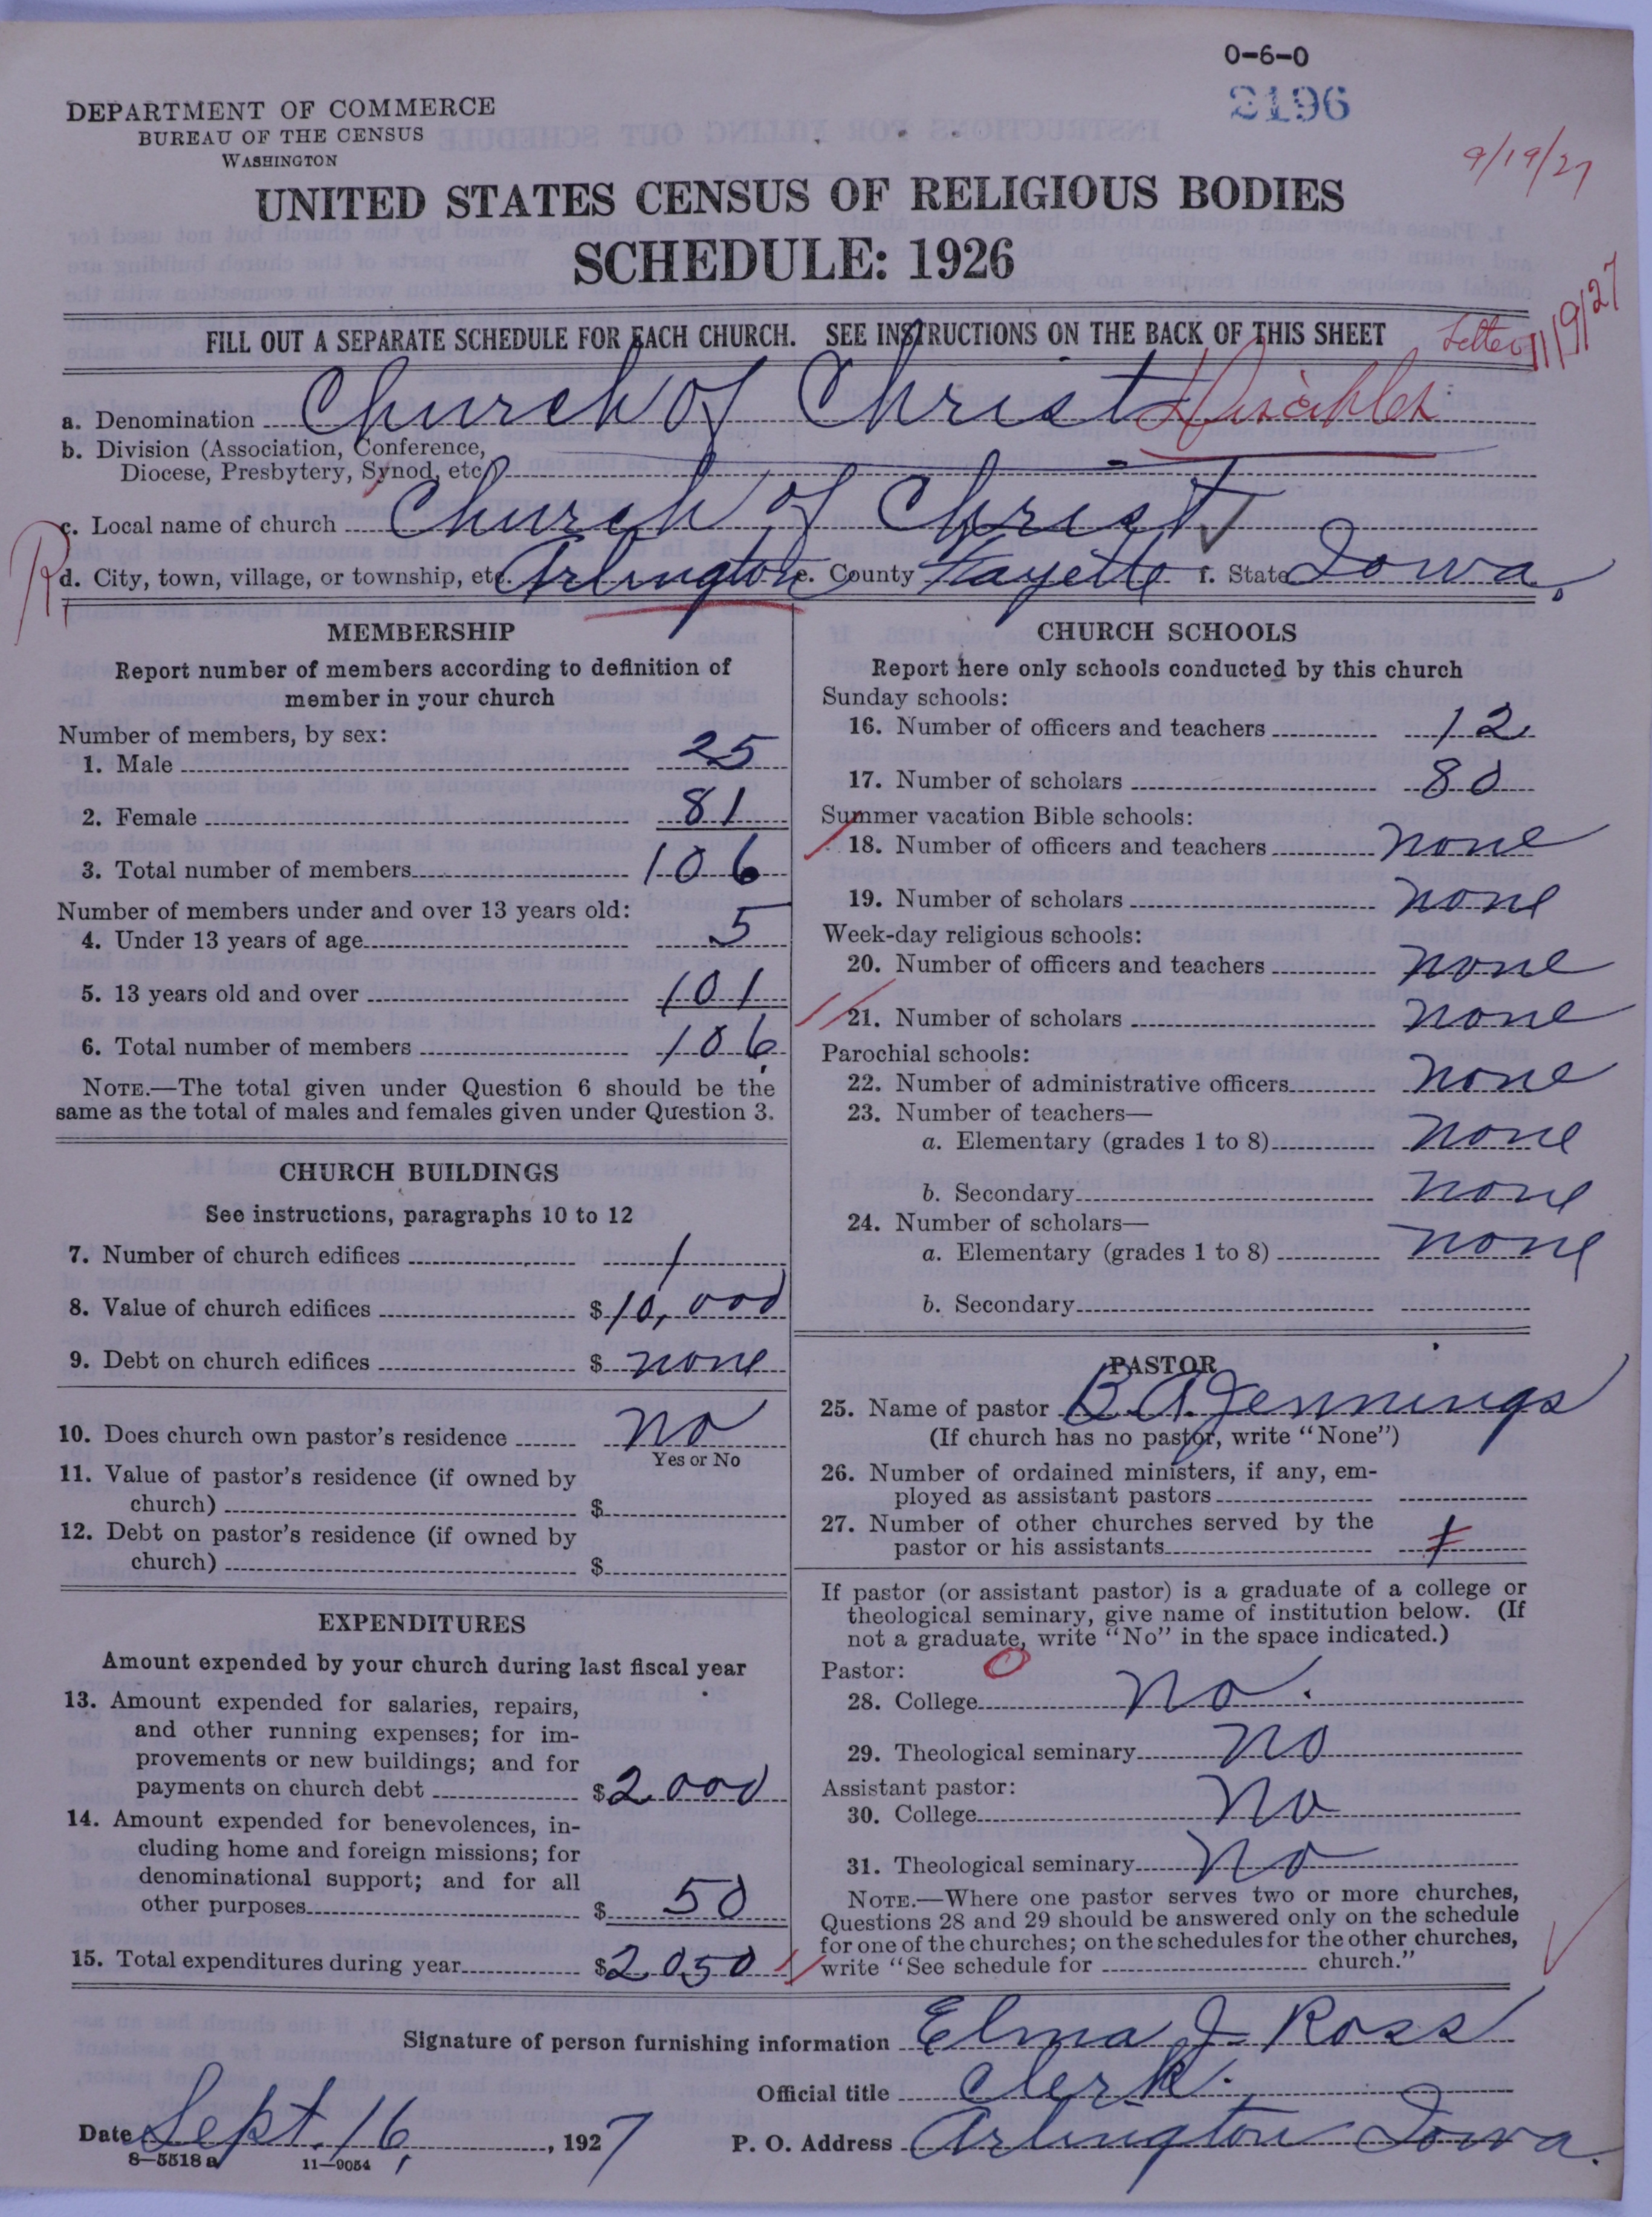 0-6-0
2196
DEPARTMENT OF COMMERCE
BUREAU OF THE CENSUS
WASHINGTON
9/19/27
UNITED STATES CENSUS OF RELIGIOUS BODIES
SCHEDULE: 1926
FILL OUT A SEPARATE SCHEDULE FOR EACH CHURCH. SEE INSTRUCTIONS ON THE BACK OF THIS SHEET
Letter 11/9/27
a. Denomination Church of Christ Disciples
b. Division (Association, Conference,
Diocese, Presbytery, Synod, etc.)
c. Local name of church Church of Christ
d. City, town, village, or township, etc. Arlington e. County Fayette f. State Iowa.
MEMBERSHIP
Report number of members according to definition of
member in your church
Number of members, by sex:
1. Male 25
2. Female 81
3. Total number of members 106
Number of members under and over 13 years old:
4. Under 13 years of age 5
5. 13 years old and over 101
6. Total number of members 106
NOTE.—The total given under Question 6 should be the
same as the total of males and females given under Question 3.
CHURCH BUILDINGS
See instructions, paragraphs 10 to 12
7. Number of church edifices 1
8. Value of church edifices $10,000
9. Debt on church edifices $ none
10. Does church own pastor's residence No
Yes or No
11. Value of pastor's residence (if owned by
church) $
12. Debt on pastor's residence (if owned by
church) $
EXPENDITURES
Amount expended by your church during last fiscal year
13. Amount expended for salaries, repairs,
and other running expenses; for im-
provements or new buildings; and for
payments on church debt $2000
14. Amount expended for benevolences, in-
cluding home and foreign missions; for
denominational support; and for all
other purposes $ 50
15. Total expenditures during year $2050
CHURCH SCHOOLS
Report here only schools conducted by this church
Sunday schools:
16. Number of officers and teachers 12
17. Number of scholars 80
Summer vacation Bible schools:
18. Number of officers and teachers none
19. Number of scholars none
Week-day religious schools:
20. Number of officers and teachers none
21. Number of scholars none
Parochial schools:
22. Number of administrative officers none
23. Number of teachers—
a. Elementary (grades 1 to 8) none
b. Secondary none
24. Number of scholars—
a. Elementary (grades 1 to 8) none
b. Secondary
PASTOR
25. Name of pastor B. A. Jennings
(If church has no pastor, write "None")
26. Number of ordained ministers, if any, em-
ployed as assistant pastors
27. Number of other churches served by the
pastor or his assistants 1
If pastor (or assistant pastor) is a graduate of a college or
theological seminary, give name of institution below. (If
not a graduate, write "No" in the space indicated.)
Pastor:
28. College No.
29. Theological seminary No
Assistant pastor:
30. College No
31. Theological seminary No
NOTE.—Where one pastor serves two or more churches,
Questions 28 and 29 should be answered only on the schedule
for one of the churches; on the schedules for the other churches,
write "See schedule for church."
Signature of person furnishing information Elma J Ross
Official title Clerk.
Date Sept. 16, 1927 P. O. Address Arlington Iowa.
8—5518 a 11—9054